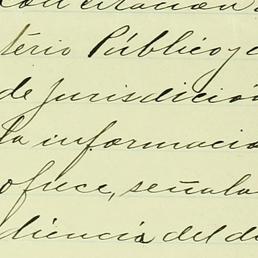 con citación
terio Público y
de jurisdicción
la informació
ofrece, señala
diencia del d